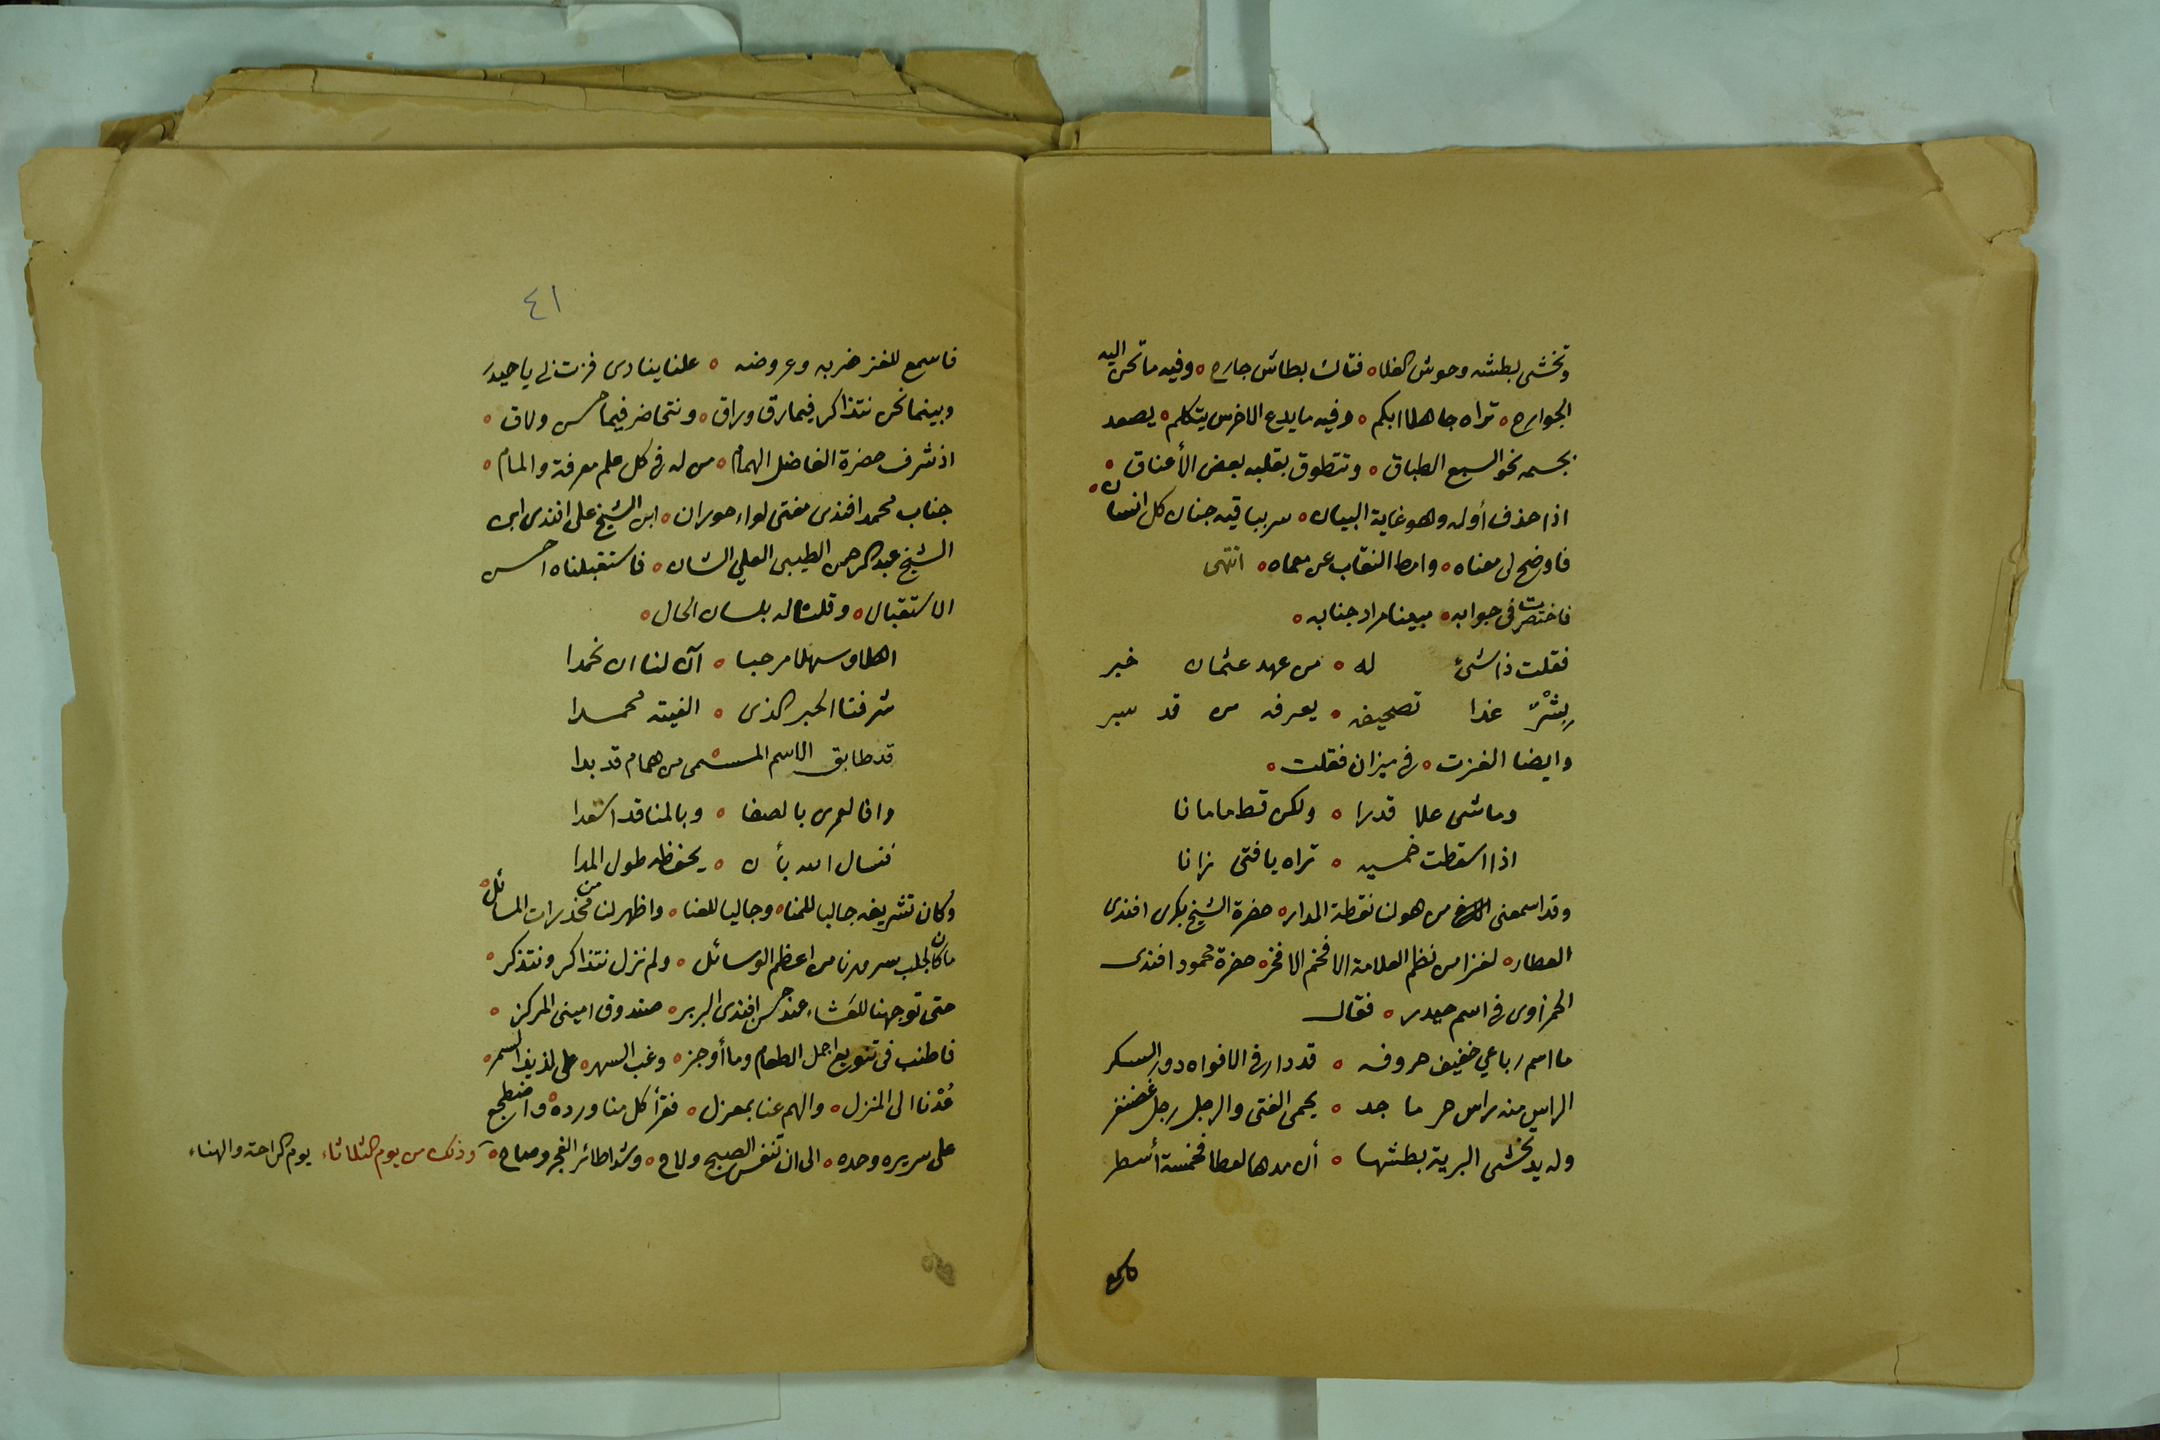 وتخشى بطشه وحوش الفلاه فتاك بطاش جارح ه وفيه ما تحن اليه
الجوارح ه تراه جاهلا ابكم ه وفيه ما يدع الاخرس يتكلم ه يصعد
بجسمه نحو السبع الطباق ه وتتطوق بقلبه بعض الأعناق ه
اذا حذف أوله وهو غاية البيان ه سر بباقيه جنان كل انسان ه
فاوضح لى معناه ه وامط النقاب عن معماه ه انتهى
فاختصرت فى جوابه ه مبينا مراد جنابه ه
فقلت ذا شئ له ه من عهد عثمان خبر
بِشْرٌ غدا تصحيفه ه يعرفه من قد سبر
وايضا الغزت ه فى ميزان فقلت ه
وما شى علا قدرا ه ولكن قط ما مانا
اذا اسقطت خمسيه ه تراه يا فتى زانا
وقد اسمعنى من هو لنا نقطة المدار ه حضرة الشيخ بكرى افندى
العطار ه لغزا من نظم العلامة الافخم الافخر ه حضرة محمود افندى
الحمزاوى فى اسم حيدر ه فقال
ما اسم رباعي خفيف حروفه ه قد دار فى الافواه دور السكر
الراس منه راس حر ما جد ه يحمى الفتى والرجل رجل غضنفر
وله يد تخشى البرية بطشها ه أن مدها لعطا فخمسة أسطر
فاسمع
٤١
فاسمع للغز ضربه وعروضه ه علنا ينادى فزت لى يا حيدر
وبينما نحن نتذاكر فيما رق وراق ه ونتحاضر فيما حسن ولاق ه
اذ شرف حضرة الفاضل الهمام ه من له فى كل علم معرفة والمام ه
جناب محمد افندى مفتى لواء حوران ه ابن الشيخ على افندى ابن
الشيخ عبد الرحمن الطيبى العلي الشان ه فاستقبلناه احسن
الاستقبال ه وقلت له بلسان الحال ه
اهلا وسهلا مرحبا ه آن لنا ان نحمدا
شرفنا الحبر الذى ه الفيته محمدا
قد طابق الاسم المسمى من همام قد بدا
وافا لعمرى بالصفا ه وبالمنا قد اسعدا
فنسال الله بأن ه يحفظه طول المدا
وكان تشريفه جالبا للمناه وجاليا للعنا ه واظهر لنا من مخدرات المسائل ه
ما كان لجلب سرورنا من اعظم الوسائل ه ولم نزل نتذاكر ونتذكر ه
حتى توجهنا للعَشاء عند حسن افندى البربر ه صندوق امينى المركز ه
فاطنب فى تنويع اجمل الطعام وما أوجز ه وغب السهر ه على لذيذ السمر ه
عُدْنا الى المنزل ه والهم عنا بمعزل ه فقرأ كل منا ورده ه واضطجع
على سريره وحده ه الى ان تنفس الصبح ولاح ه وشدا طائر الفجر وصاح ه وذلك من يوم الثلاثاء يوم الراحة والهناء